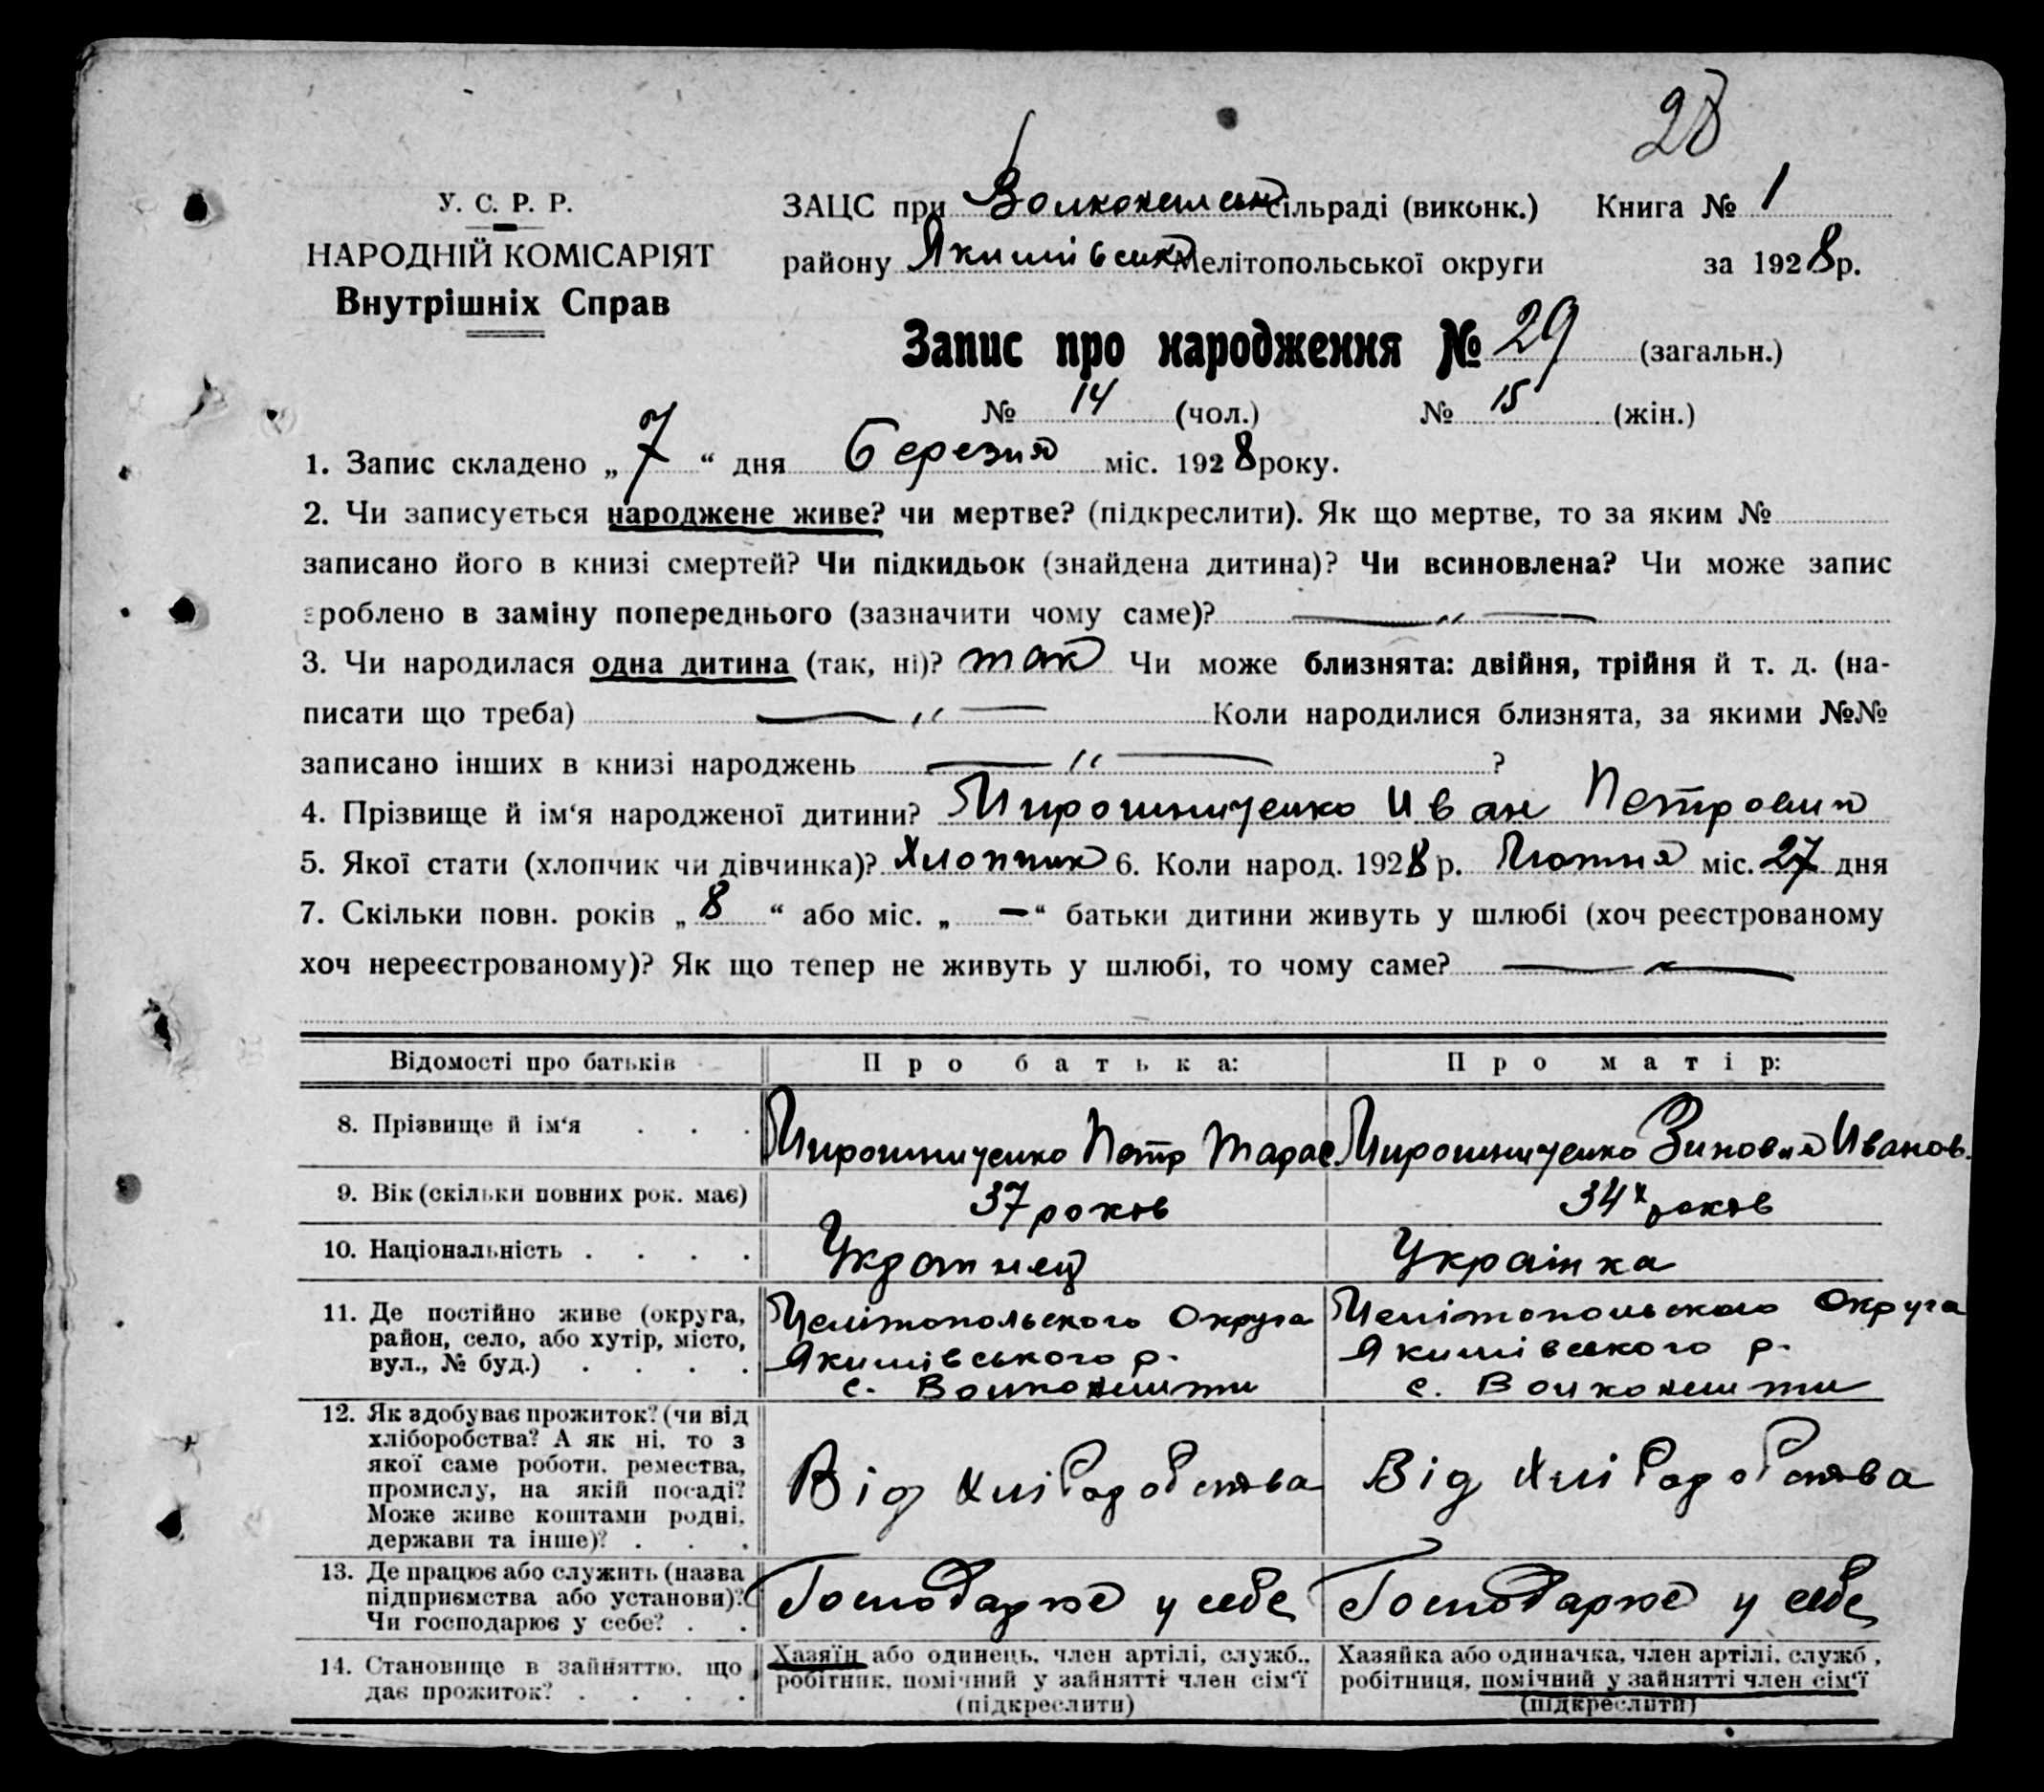 28
У. С. Р. Р.
НАРОДНІЙ КОМІСАРІЯТ
Внутрішніх Справ
ЗАЦС при Волконешен сільраді (виконк.) Книга № 1
району Якимівськ Мелітопольської округи за 1928 р.
Запис про народження № 29 (загальн.)
№ 14 (чол.) № 15 (жін.)
1. Запис складено „7“ дня березня міс. 1928 року.
2. Чи записується народжене живе? чи мертве? (підкреслити). Як що мертве, то за яким №
записано його в книзі смертей? Чи підкидьок (знайдена дитина)? Чи всиновлена? Чи може запис
зроблено в заміну попереднього (зазначити чому саме)? — „ —
3. Чи народилася одна дитина (так, ні)? так Чи може близнята: двійня, трійня й т. д. (на-
писати що треба) — „ — Коли народилися близнята, за якими №№
записано інших в книзі народжень — „ — ?
4. Прізвище й ім‘я народженої дитини? Мирошниченко Иван Петрович
5. Якої стати (хлопчик чи дівчинка)? Хлопчик 6. Коли народ. 1928 р. Лютня міс. 27 дня
7. Скільки повн. років „8“ або міс. „—“ батьки дитини живуть у шлюбі (хоч реєстрованому
хоч нереєстрованому)? Як що тепер не живуть у шлюбі, то чому саме? — „ —
Відомості про батьків Про батька: Про матір:
8. Прізвище й ім‘я . . . Мирошниченко Петр Тарас Мирошниченко Зиновия Иванов.
9. Вік (скільки повних рок. має) 37 років 34х років
10. Національність . . . . Украинец Українка
11. Де постійно живе (округа, район, село, або хутір, місто, вул., № буд.) . . . .
Мелітопольского Округа
Якимівського р.
с. Волконешти
Мелітопольского Округа
Якимівського р.
с. Волконешти
12. Як здобуває прожиток? (чи від хліборобства? А як ні, то з якої саме роботи, ремества, промислу, на якій посаді? Може живе коштами родні, держави та інше)? . . .
Від Хлібородства
Від Хлібородства
13. Де працює або служить (назва підприємства або установи)? Чи господарює у себе? . .
Господарює у себе
Господарює у себе
14. Становище в зайняттю, що дає прожиток? . . . .
Хазяїн або одинець, член артілі, служб., робітник, помічний у зайнятті член сім‘ї (підкреслити)
Хазяйка або одиначка, член артілі, служб., робітниця, помічний у зайнятті член сім‘ї (підкреслити)